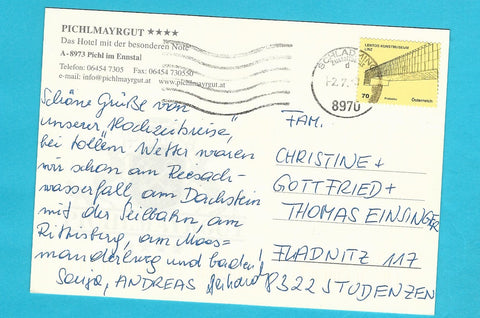 PICHLMAYRGUT ★★★★
Das Hotel mit der besonderen Note
A-8973 Pichl im Ennstal
Telefon: 06454 7305 Fax: 06454 730550
e-mail: info@pichlmayrgut.at www.pichlmayrgut.at
Schöne Grüße von
unserer "Hochzeitsreise",
bei tollem Wetter waren
wir schon am Riesach-
wasserfall, am Dachstein
mit der Seilbahn, am
Rittisberg, am Moos-
manderlweg und baden!
Sonja, ANDREAS, Gerhard
SCHLADMING
8970
LENTOS KUNSTMUSEUM
LINZ
70
Österreich
FAM.
CHRISTINE +
GOTTFRIED +
THOMAS EINSINGER
FLADNITZ 117
8322 STUDENZEN